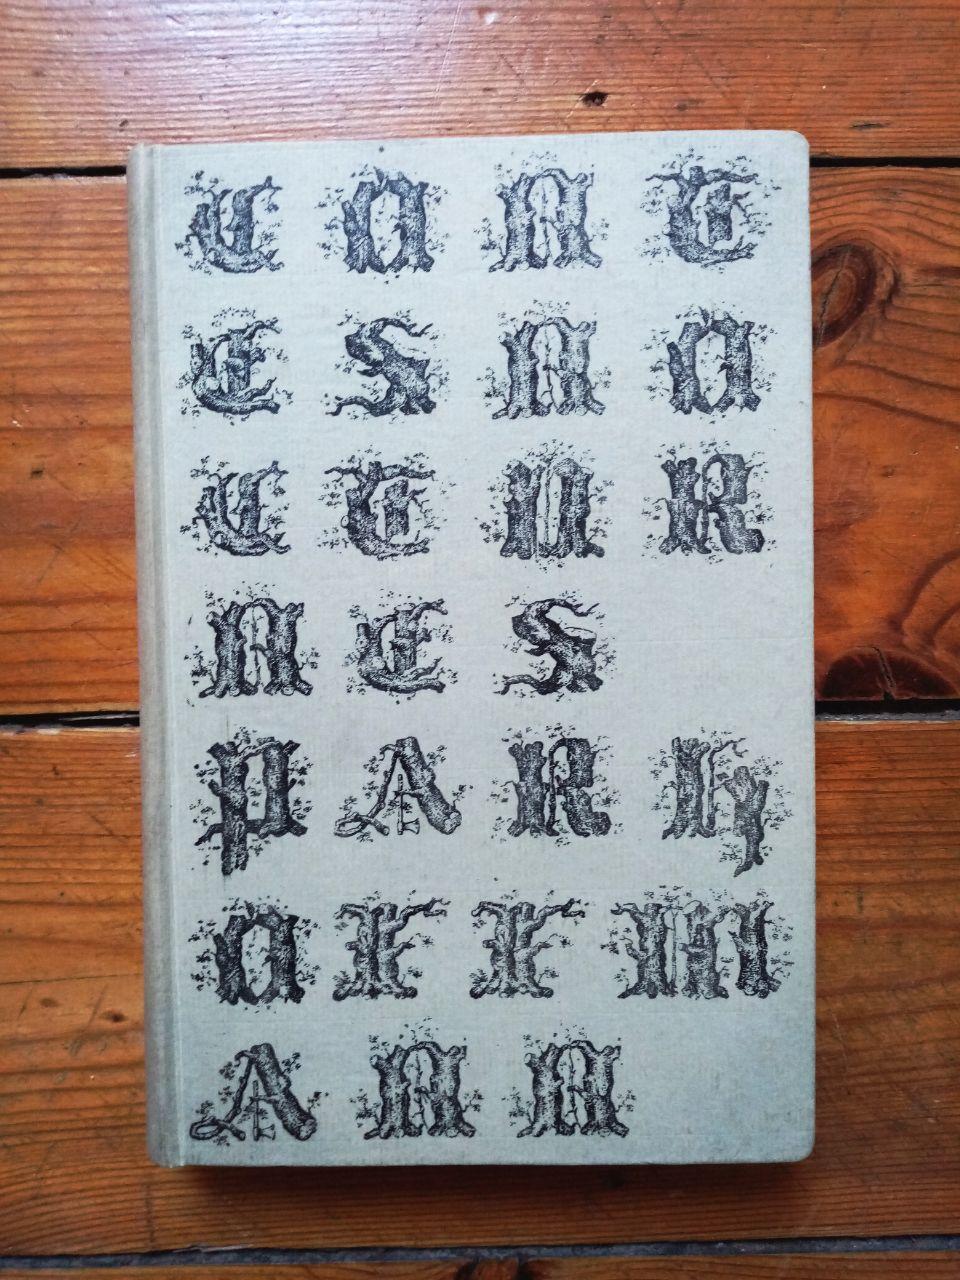 CONT
ESNO
CTUR
NES
PARH
OFFM
ANN